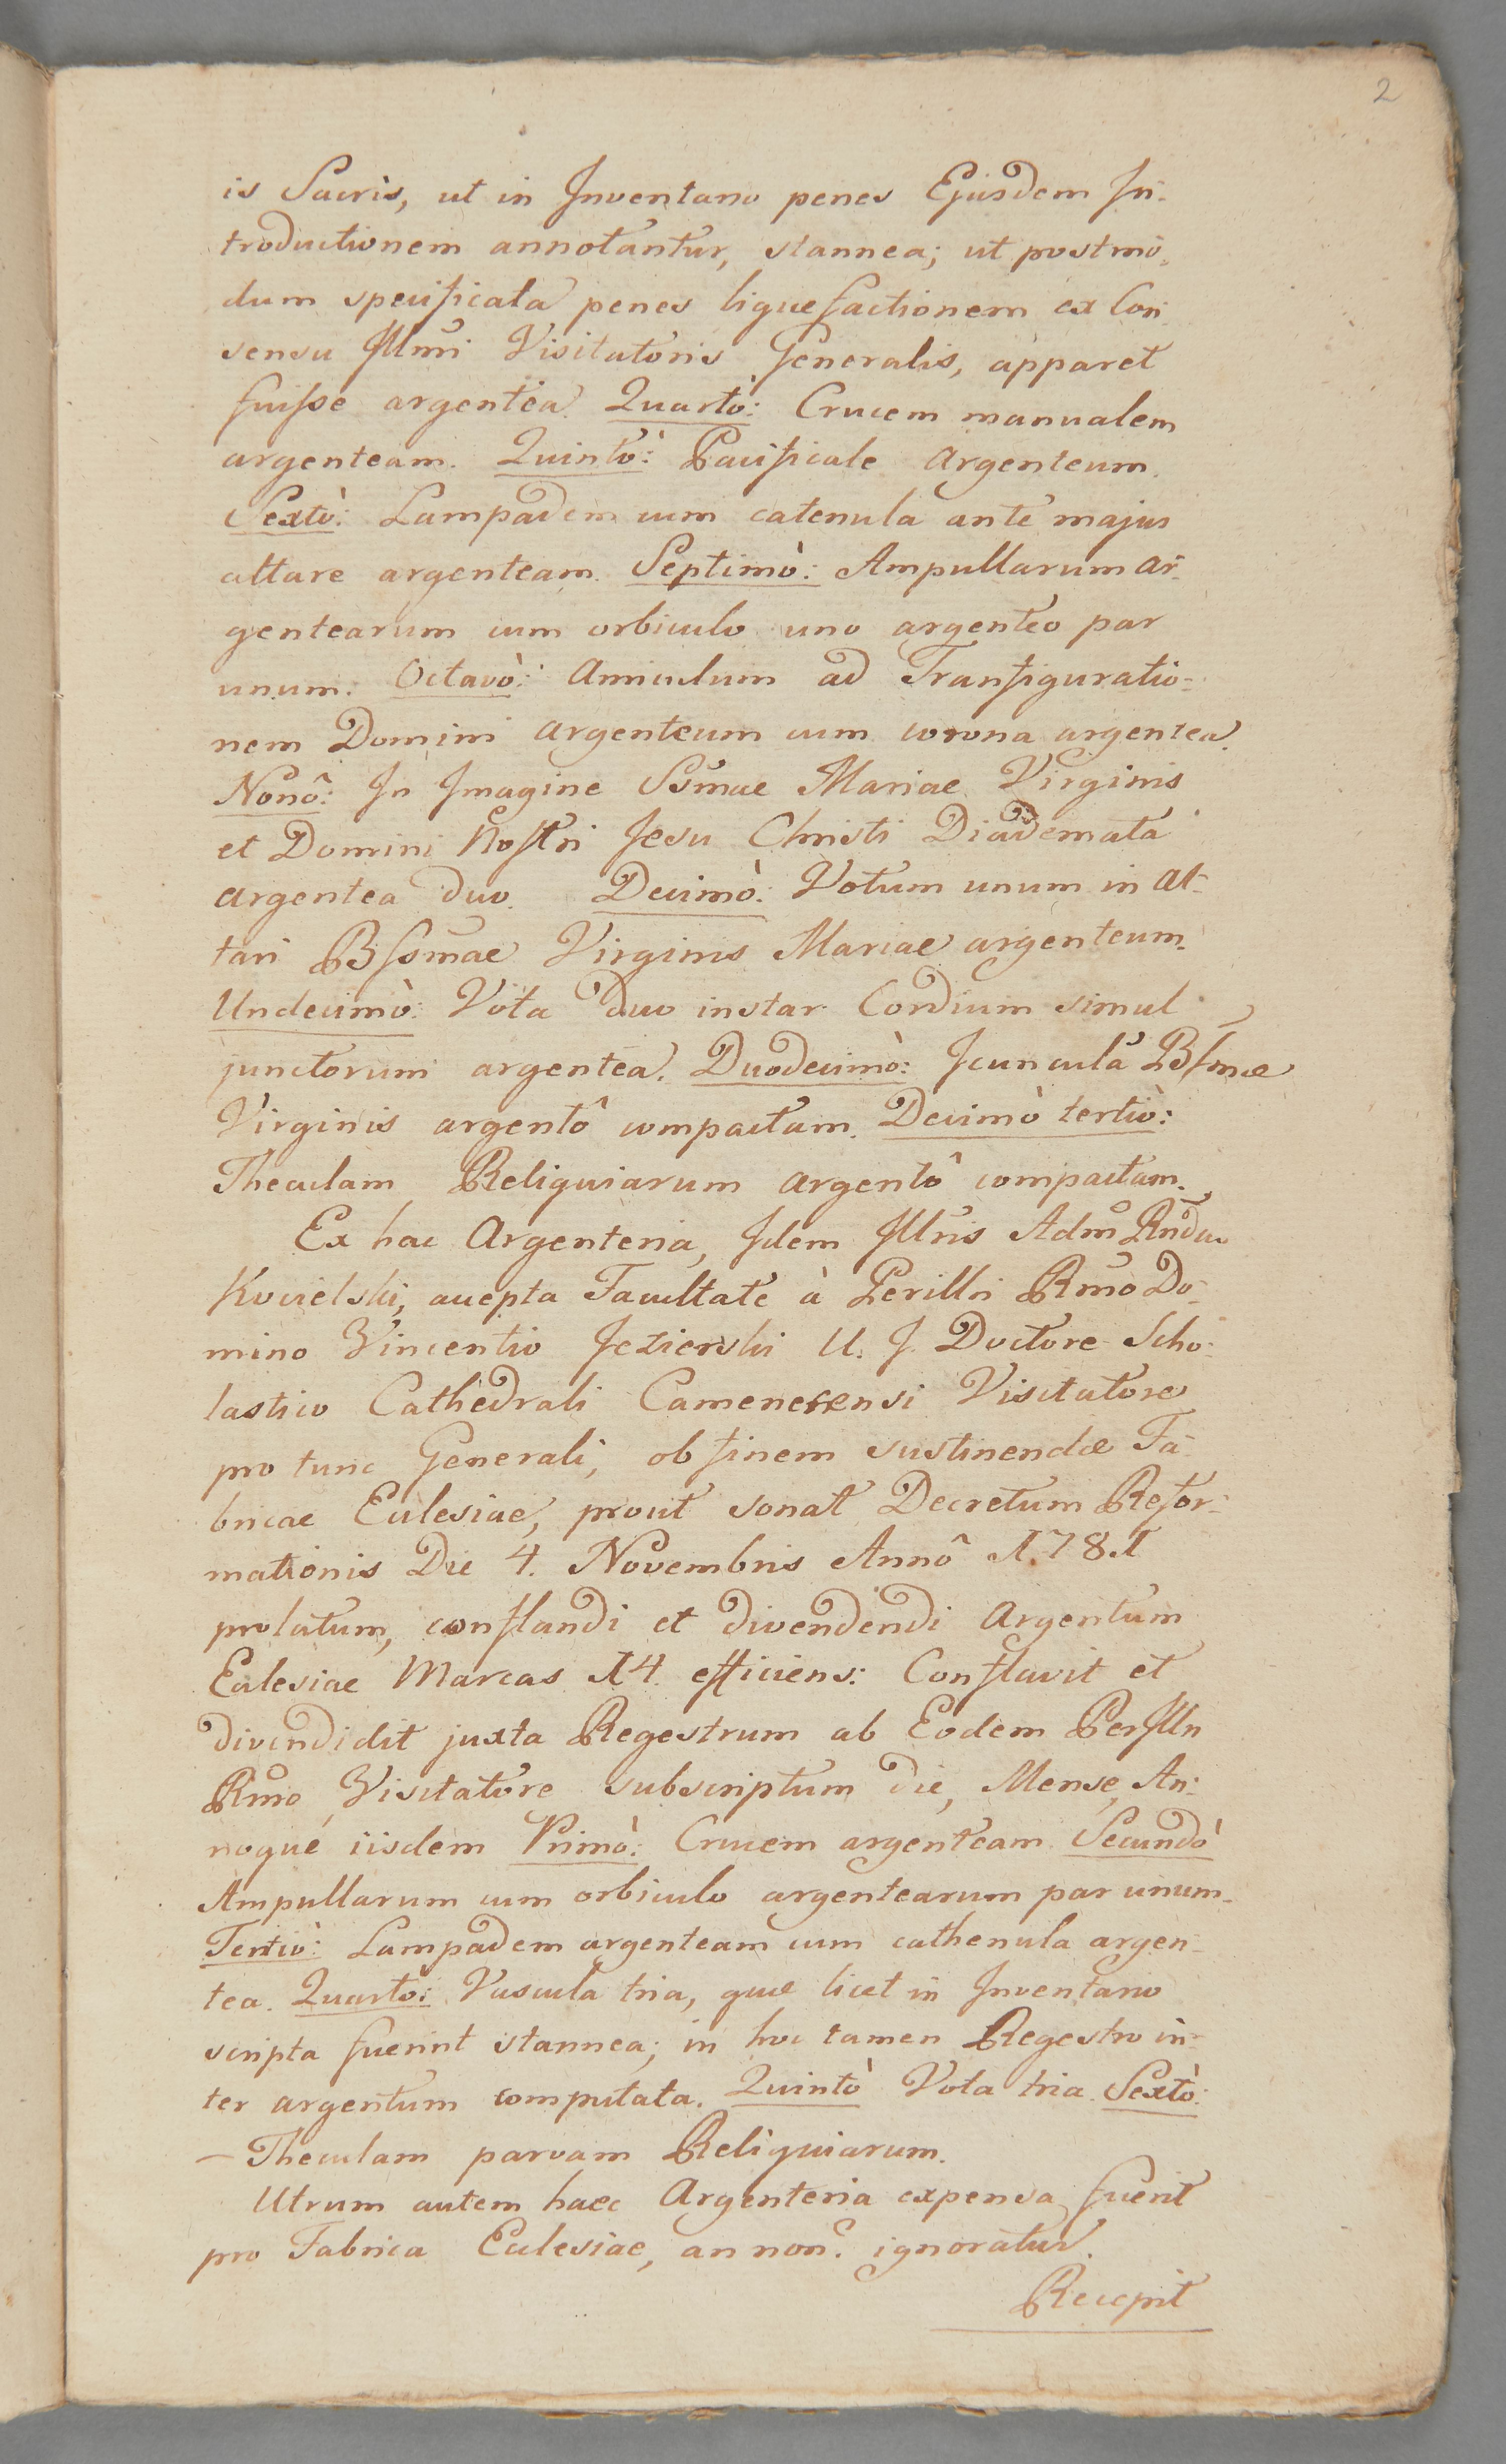 2
is Sacris, ut in Inventario penes Ejusdem In-
troductionem annotantur, stannea; ut postmo-
dum specificata penes liquefactionem ex Con-
sensu Illmi Visitatoris Generalis, apparet
fuisse argentea. Quartò: Crucem manualem
argenteam. Quintò: Pacificale Argenteum.
Sextò: Lampadem cum catenula ante majus
altare argenteam. Septimò: Ampullarum ar-
gentearum cum orbiculo uno argenteo par
unum. Octavò: Amiculum ad Transfiguratio-
nem Domini argenteum cum corona argentea.
Nonô: In Imagine Ssmae Mariae Virginis
et Domini Nostri Jesu Christi Diademata
argentea duo. Decimò: Votum unum in al-
tari Bssmae Virginis Mariae argenteum.
Undecimò: Vota duo instar Cordium simul
junctorum argentea. Duodecimò: Icunculã Bssmae
Virginis argentô compactam. Decimò tertiò:
Theculam Reliquiarum argentô compactam.
Ex hac Argenteria, Idem Illris Adm Rndus
Kocielski, accepta Facultate à Perilli Rmo Do-
mino Vincentio Jezierski U. J. Doctore Scho-
lastico Cathedrali Camenecensi Visitatore
pro tunc Generali, ob finem sustinendae Fa-
bricae Eclesiae, prout sonat Decretum Refor-
mationis Die 4. Novembris Annô 1781
prolatum, conflandi et divendendi Argentum
Eclesiae Marcas 14 efficiens: Conflavit et
divendidit juxta Regestrum ab Eodem PerIllri
Rmo Visitatore subscriptum die, Mense, An-
noque iisdem Primò: Crucem argenteam. Secundò
Ampullarum cum orbiculo argentearum par unum.
Tertiò: Lampadem argenteam cum cathenula argen-
tea. Quartò: Vascula tria, quae licet in Inventario
scripta fuerint stannea; in hoc tamen Regestro in-
ter argentum computata. Quintò Vota tria. Sextò:
— Theculam parvam Reliquiarum.
Utrum autem haec Argenteria expensa fuerit
pro Fabrica Eclesiae, an non? ignoratur.
Recepit